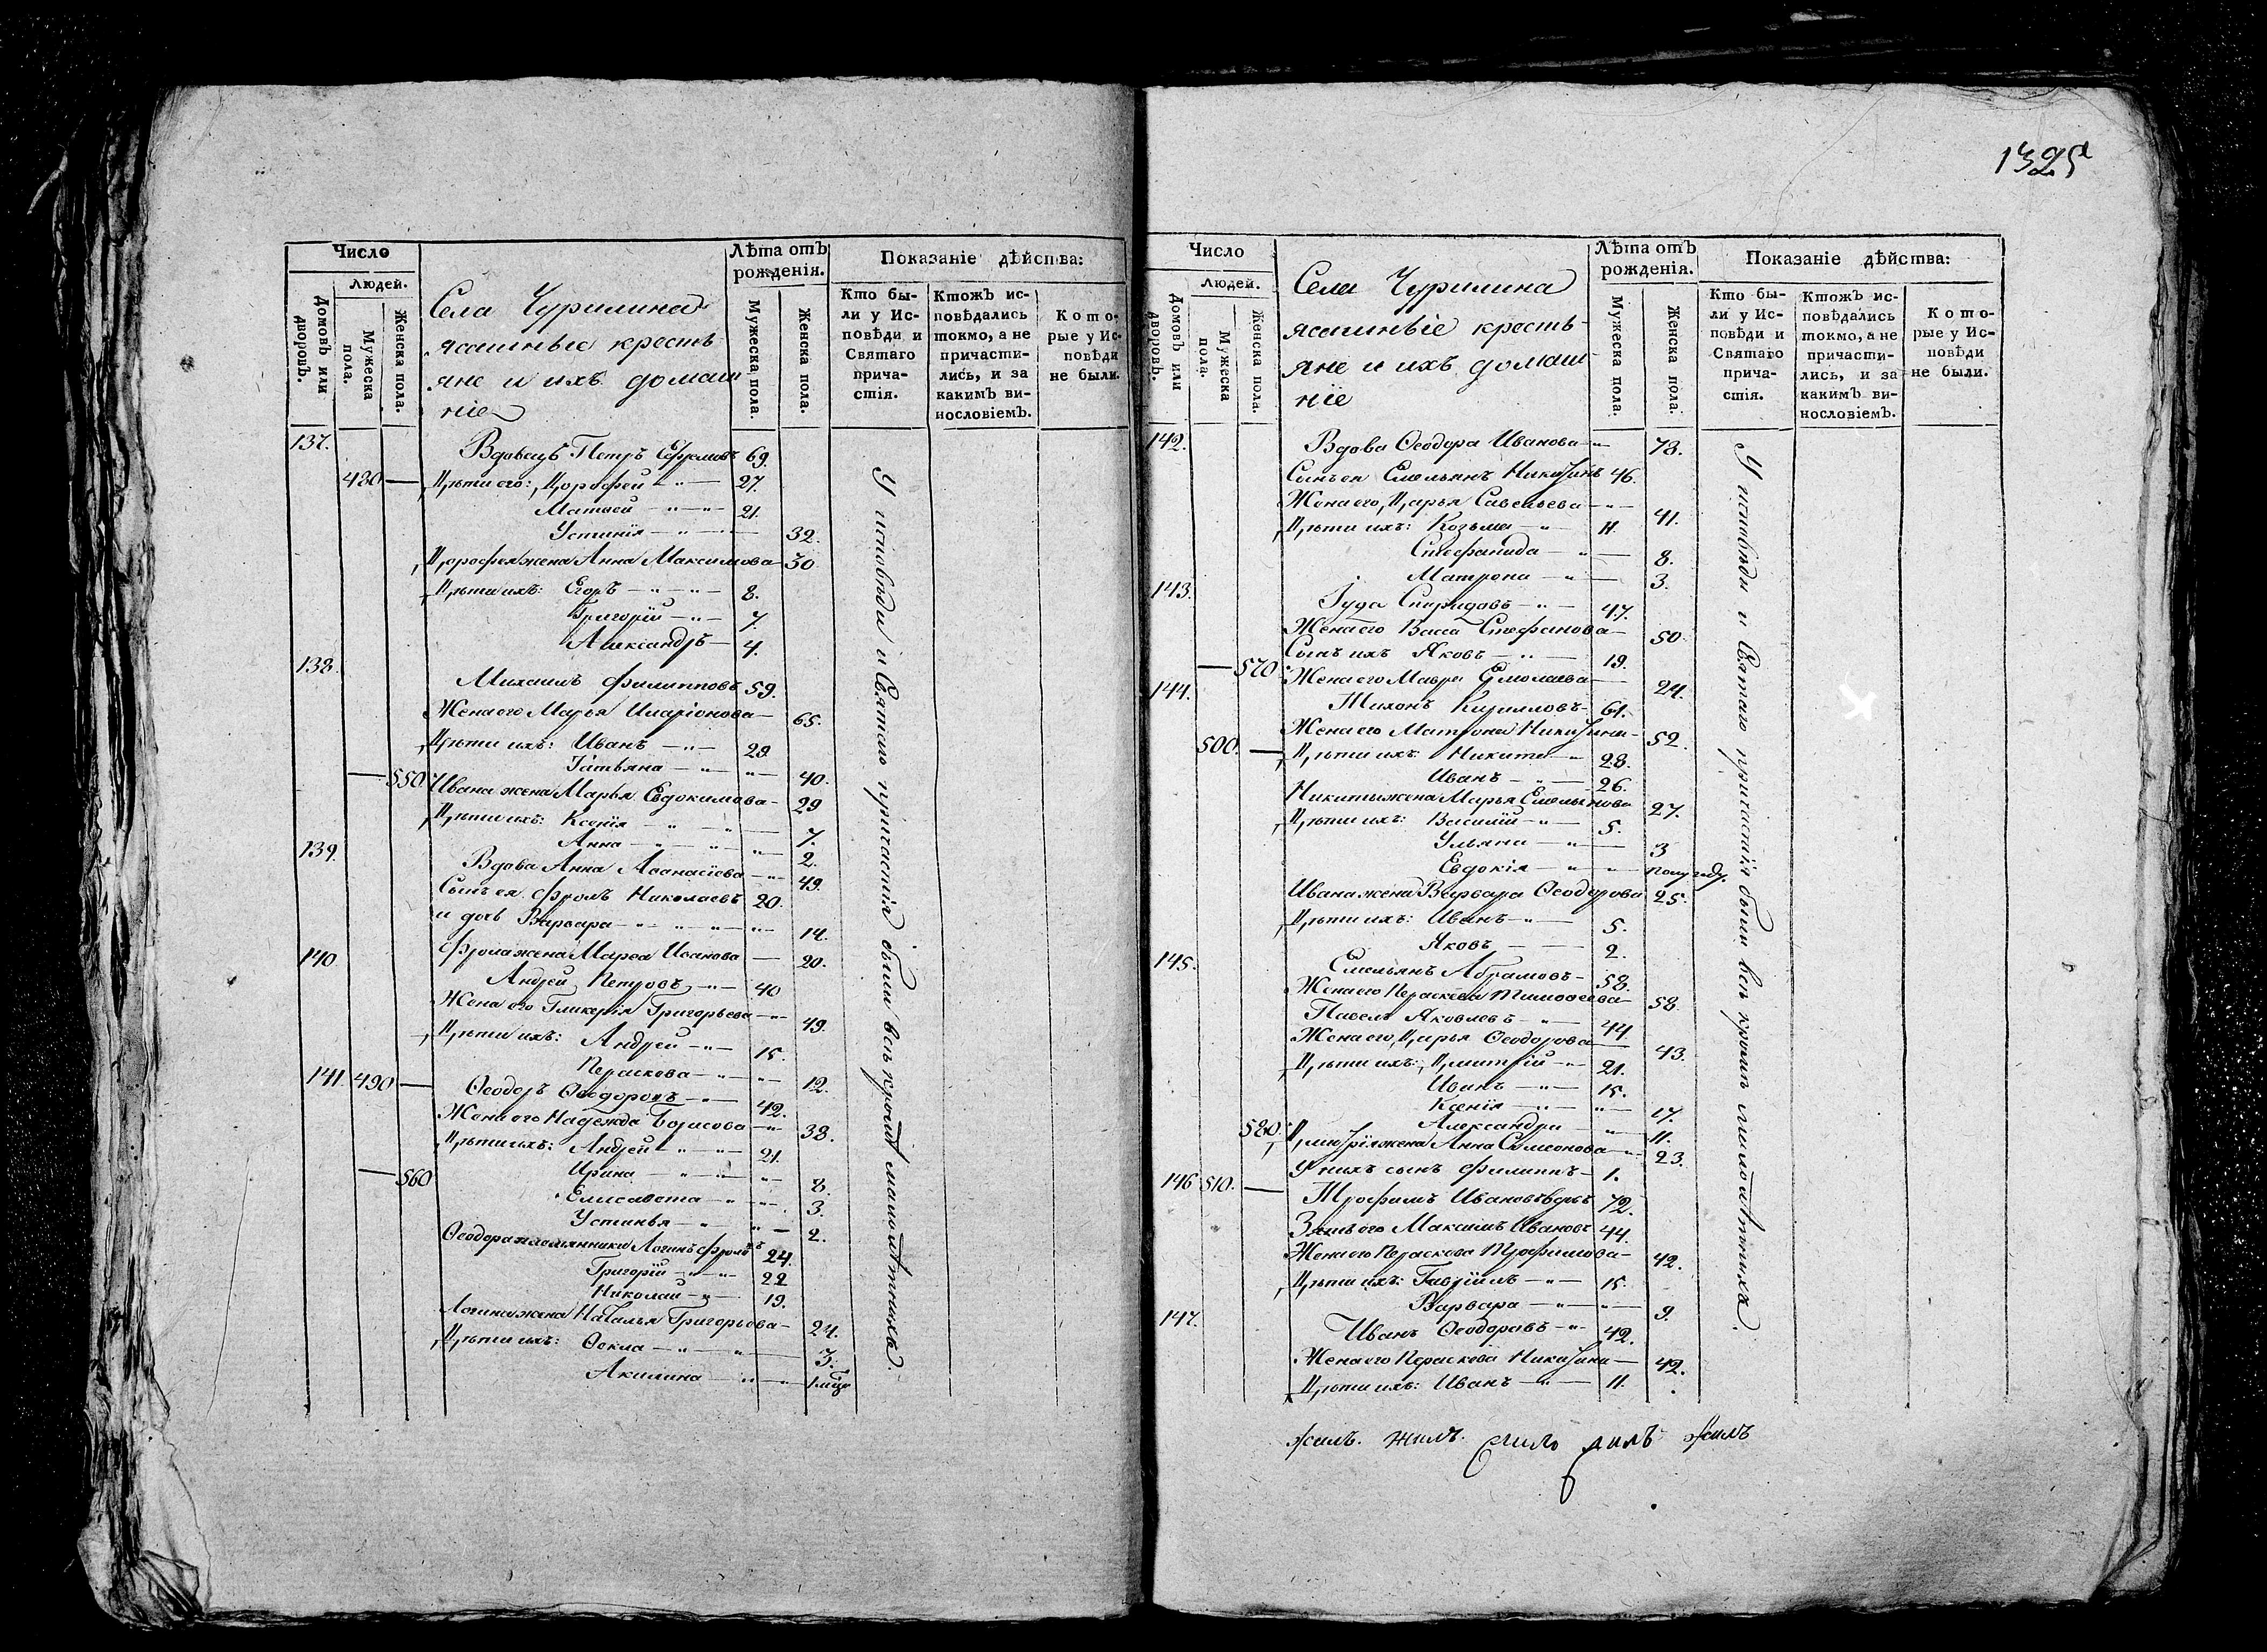 1325
Число
Людей.
Домовъ или дворовъ.
Мужеска пола.
Женска пола.
Села Чурилина
ясашные кресть
яне и ихъ домаш
ніе
Лѣта отъ рожденія.
Мужеска пола.
Женска пола.
Показаніе дѣйства:
Кто были у Исповѣди и Святаго причастія.
Ктожъ исповѣдались токмо, а не причастились, и за какимъ винословіемъ.
Которые у Исповѣди не были.
137. Вдовецъ Петръ Ефремовъ 69.
480 — Дѣти его: Дорофей — 27.
Матвей — 21.
Устинія — 32.
Дорофея жена Анна Максимова — 30
Дѣти ихъ: Егоръ — 8.
Григорій — 7.
Александръ — 4.
138. Михаилъ Филипповъ 59.
Жена его Марья Иларіонова — 65.
Дѣти ихъ: Иванъ — 29
Татьяна — 40.
— 550 Ивана жена Марья Евдокимова — 29
Дѣти ихъ: Ксенія — 7.
Анна — 2.
139. Вдова Анна Аѳанасіева — 49.
Сынъ ея Фролъ Николаевъ 20.
и дочь Варвара — 14.
Фрола жена Марѳа Иванова — 20.
140. Андрей Петровъ — 40
Жена его Гликерія Григорьева — 49.
Дѣти ихъ: Андрей — 15.
Пераскова — 12.
141. 490 — Ѳеодоръ Ѳеодоровъ — 42.
Жена его Надежда Борисова — 38.
Дѣти ихъ: Андрей — 21.
Ирина — 8.
— 560 Елисавета — 3.
Устинья — 2.
Ѳеодора племянники Логинъ Фроловъ 24.
Григорій — 22
Николай — 19.
Логина жена Наталья Григорьева — 24.
Дѣти ихъ: Ѳекла — 3.
Акилина —
У исповѣди и Святаго причастія были всѣ кромѣ малолѣтныхъ.
Число
Людей.
Домовъ или дворовъ.
Мужеска пола.
Женска пола.
Села Чурилина
ясашныіе кресть
яне и ихъ домаш
ніе
Лѣта отъ рожденія.
Мужеска пола.
Женска пола.
Показаніе дѣйства:
Кто были у Исповѣди и Святаго причастія.
Ктожъ исповѣдались токмо, а не причастились, и за какимъ винословіемъ.
Которые у Исповѣди не были.
142. Вдова Ѳеодора Иванова — 78.
Сынъ ея Емельянъ Никитинъ 46.
Жена его Дарья Савельева — 41.
Дѣти ихъ: Козьма — 11.
Стефанида — 8.
Матрона — 3.
143. Іуда Спиридовъ — 47.
Жена его Васса Стефанова — 50.
Сынъ ихъ Яковъ — 19.
— 570 Жена его Мавра Ермолаева — 24.
144. Тихонъ Кириловъ — 61.
Жена его Матрона Никитина — 52.
500. — Дѣти ихъ: Никита — 28.
Иванъ — 26.
Никиты жена Марья Емельянова 27.
Дѣти ихъ: Василій — 5.
Ульяна — 3
Евдокія — полугоду.
Ивана жена Варвара Ѳеодорова 25.
Дѣти ихъ: Иванъ — 5.
Яковъ — 2.
145. Емельянъ Абрамовъ — 58
Жена его Пераскева Тимоѳеева — 58.
Павелъ Яковлевъ — 44.
Жена его Дарья Ѳеодорова — 43.
Дѣти ихъ: Димитрій — 21.
Иванъ — 15.
Ксенія — 17.
Александра — 11.
580. Димитрія жена Анна Симеонова — 23.
У нихъ сынъ Филиппъ — 1.
146 510. — Трофимъ Ивановъ вдовъ 72.
Зять его Максимъ Ивановъ 44.
Жена его Пераскова Трофимова — 42.
Дѣти ихъ: Гавріилъ — 15.
Варвара — 9.
147. Иванъ Ѳеодоровъ — 42.
Жена его Пераскова Никитина — 42.
Дѣти ихъ: Иванъ — 11.
У исповѣди и Святаго причастія были всѣ кромѣ малолѣтныхъ.